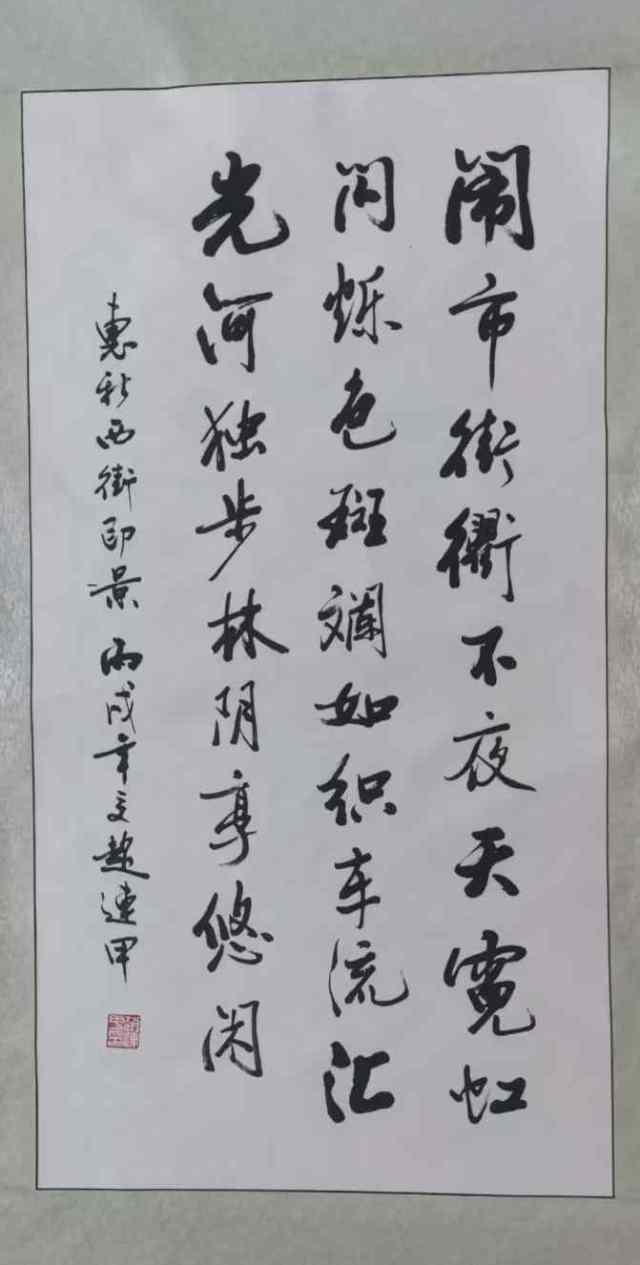 闹市街衢不夜天霓虹
闪烁色斑斓如织车流汇
光河独步林阴享悠闲
惠新西街即景 丙戌年 赵连甲